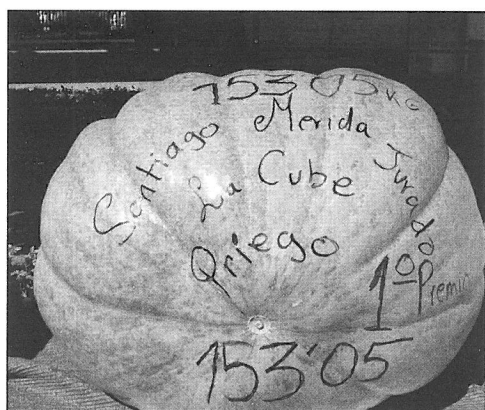 153'05 KG
Santiago Merida Jurado
La Cube
Priego
1º Premio
153'05